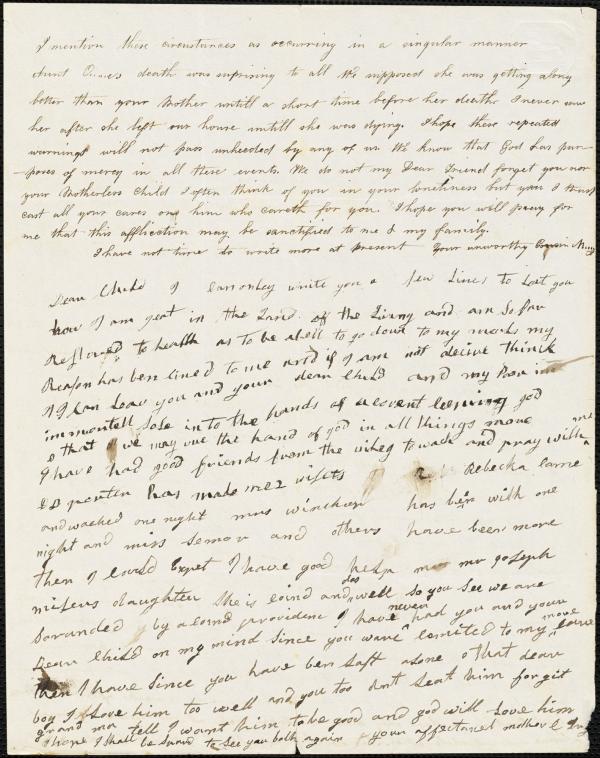 I mention these circumstances as occurring in a singular manner
Aunt death was suprising to all We supposed she was getting along
better than your Mother untill a short time before her death I never saw
her after she left our house untill she was dying. I hope these repeated
warnings will not pass unheeded by any of us We know that God has pur-
-poses of mercy in all these events. We do not my Dear Friend forget you nor
your Motherless Child I often think of you in your loneliness but you I trust
cast all your cares on him who careth for you. I hope you will pray for
me that this affliction may be sanctified to me & my family.
I have not time to write more at present Your unworthy Cousin Mary
Dear Child I can onley write you a few Lines to Let you
how I am yeat in the Land of the Living and am So far
to health as to be abell to go down to my meals my
Reason has ben to me and if I am not think
I Can Leav you and your dear Child and my Poor im
immortell Sole into the hands of a god
o that we may the hand of god in all things move
I have had good friends from the to and pray with me
has made me 2 visits Rebecka Came
and wached one night mrs has ben with one
night and miss and others have been more
then I could Expet I have good help mr Joseph
daughter She is and does well So you See we are
by a providence I have never had you and your
Dear Child on my mind Since you ware to my more
then I have Since you have ben Left alone o that dear
boy I Love him too well and you too dont Leat him forgit
grand mor tell I want him to be good and god will Love him
I hope I Shall be to See you both again your mother